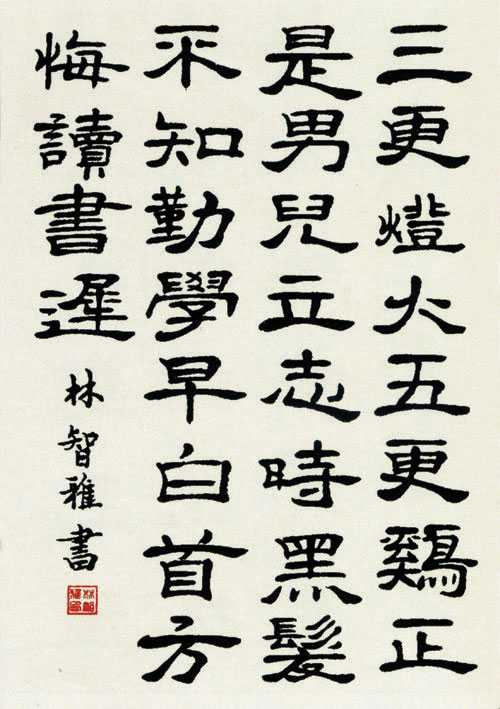 三更燈火五更鷄正
是男兒立志時黑髮
不知勤學早白首方
悔讀書遲
林智雅書